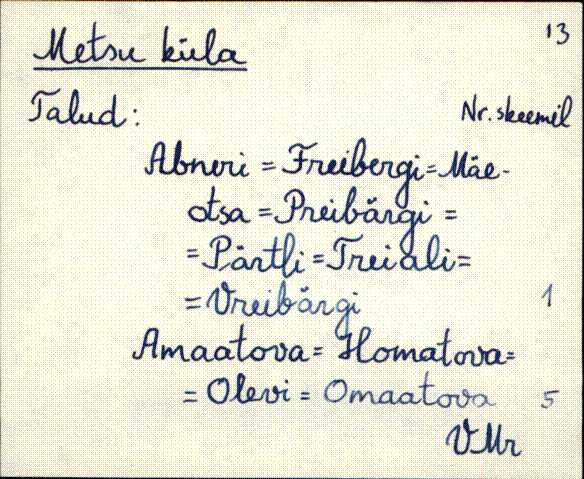 13
Metsu küla
Talud: Nr. skeemil
Abneri = Freibergi = Mäe-
otsa = Preibärgi =
= Pärtli = Treiali =
= Vreibärgi 1
Amaatova = Homatova =
= Olevi = Omaatova 5
VMr